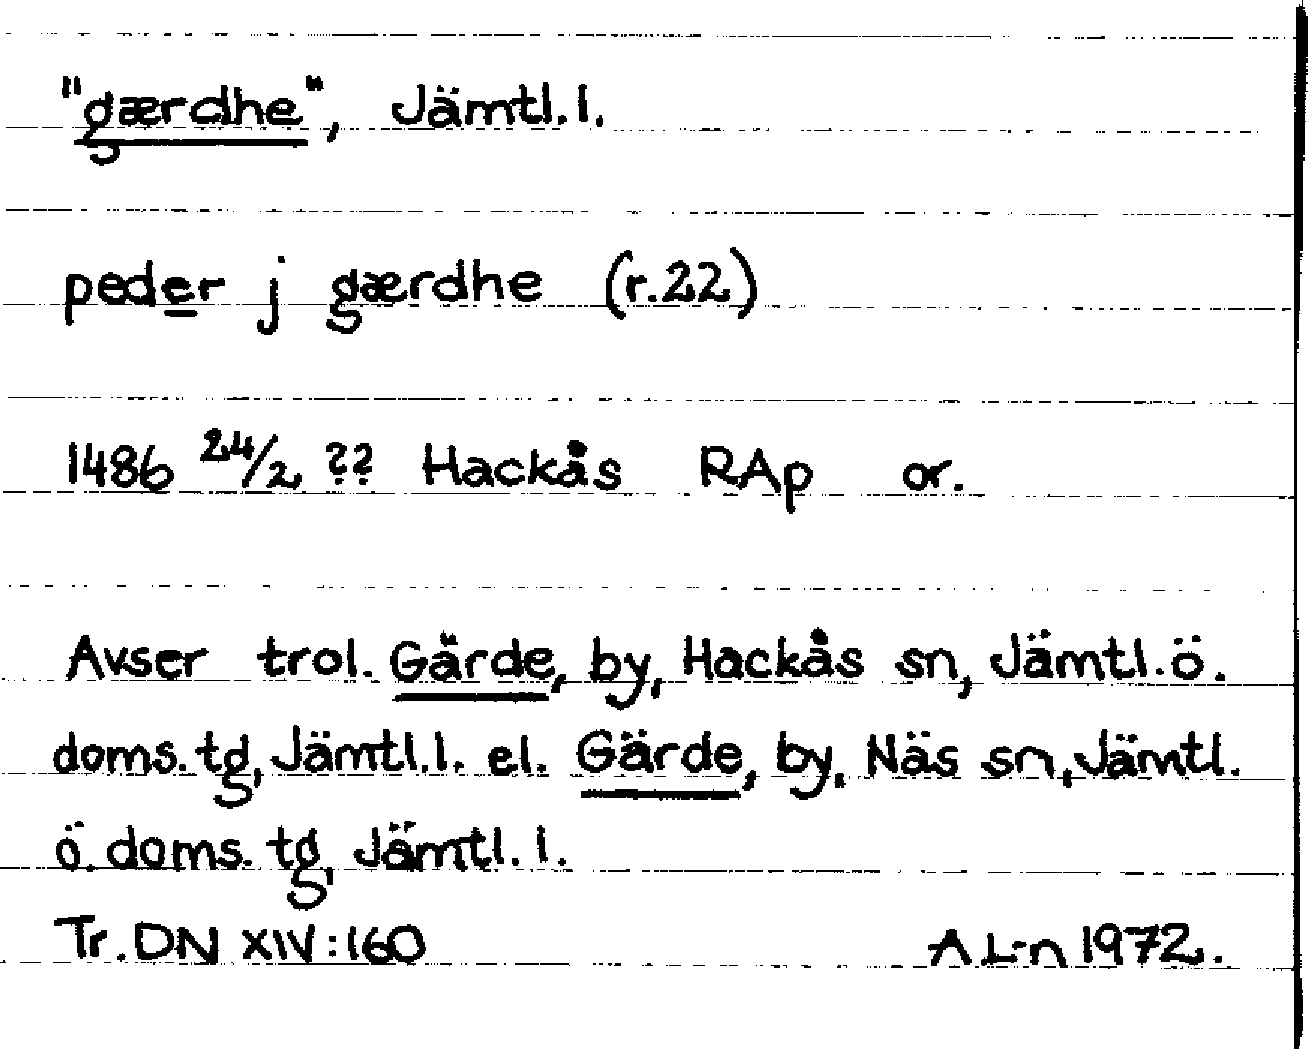 "gærdhe", Jämtl.l.
peder j gærdhe (r.22)
1486 24/2 ?? Hackås RAp or.
Avser trol. Gärde, by, Hackås sn, Jämtl.ö.
doms.tg, Jämtl.l. el. Gärde, by, Näs sn, Jämtl.
ö. doms. tg, Jämtl. l.
Tr. DN XIV:160 A L-n 1972.